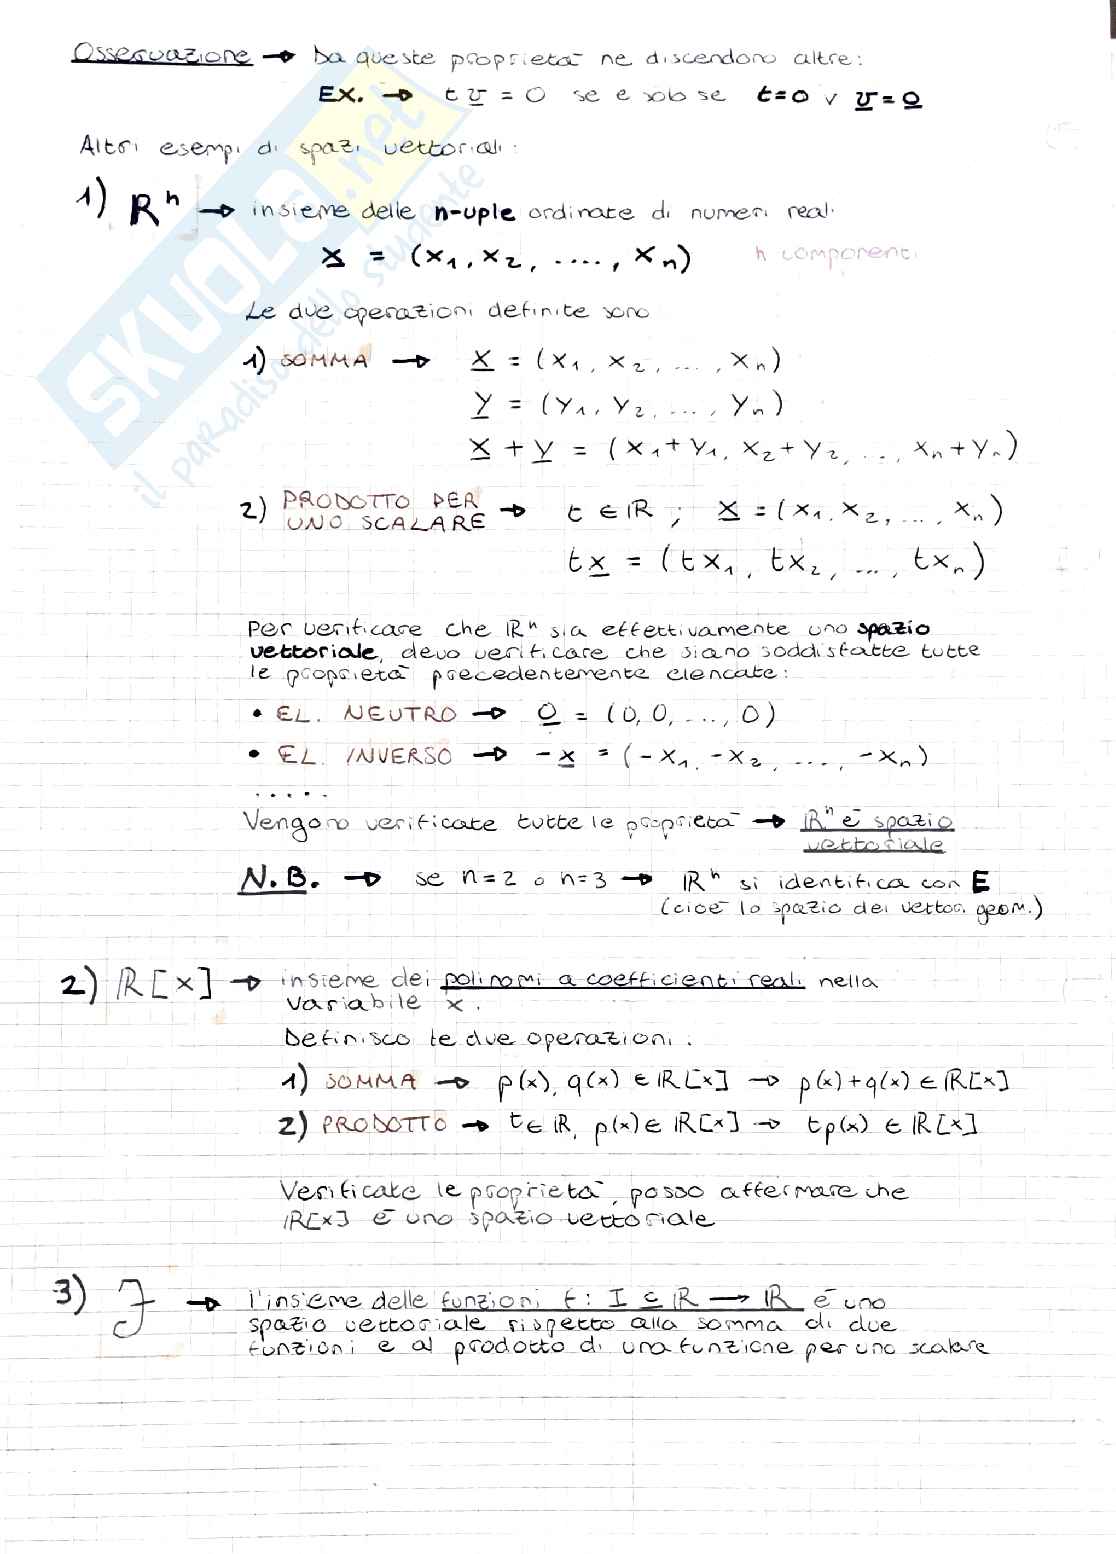 Osservazione → Da queste proprietà ne discendono altre:
EX. → t v = 0 se e solo se t=0 ∨ v=0
Altri esempi di spazi vettoriali:
1) Rⁿ → insieme delle n-uple ordinate di numeri reali
x = (x₁, x₂, ...., xₙ) n componenti
Le due operazioni definite sono
1) SOMMA → x = (x₁, x₂, ..., xₙ)
y = (y₁, y₂, ..., yₙ)
x + y = (x₁+y₁, x₂+y₂, ..., xₙ+yₙ)
2) PRODOTTO PER
UNO SCALARE → t ∈ ℝ ; x = (x₁, x₂, ..., xₙ)
t x = (tx₁, tx₂, ..., txₙ)
Per verificare che ℝⁿ sia effettivamente uno spazio
vettoriale, devo verificare che siano soddisfatte tutte
le proprietà precedentemente elencate:
• EL. NEUTRO → 0 = (0, 0, ..., 0)
• EL. INVERSO → -x = (-x₁, -x₂, ...., -xₙ)
.....
Vengono verificate tutte le proprietà → ℝⁿ è spazio
vettoriale
N.B. → se n=2 o n=3 → ℝⁿ si identifica con E
(cioè lo spazio dei vettori geom.)
2) ℝ[x] → insieme dei polinomi a coefficienti reali nella
variabile x.
Definisco le due operazioni:
1) SOMMA → p(x), q(x) ∈ ℝ[x] → p(x)+q(x) ∈ ℝ[x]
2) PRODOTTO → t ∈ ℝ, p(x) ∈ ℝ[x] → tp(x) ∈ ℝ[x]
Verificate le proprietà, posso affermare che
ℝ[x] è uno spazio vettoriale
3) ℱ → l'insieme delle funzioni f: I ⊆ ℝ → ℝ è uno
spazio vettoriale rispetto alla somma di due
funzioni e al prodotto di una funzione per uno scalare
SKUOLA.net
il paradiso dello studente